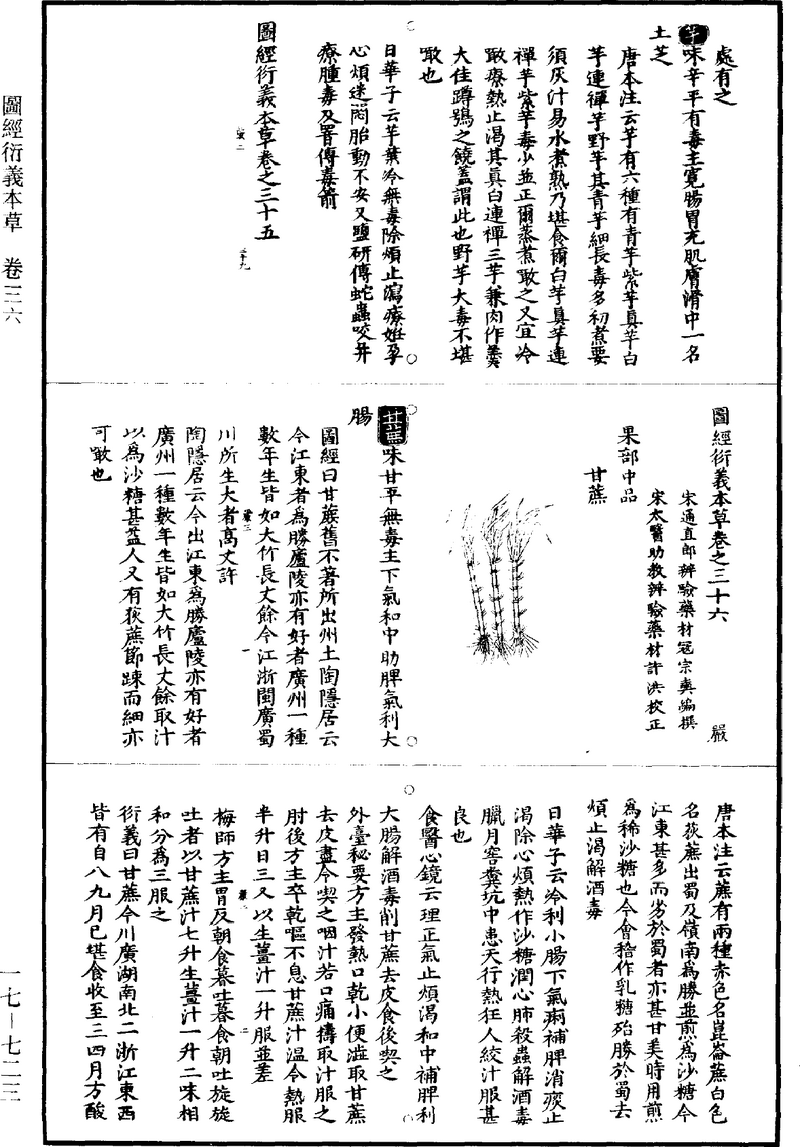 圖經衍義本草　卷三六
處有之
芋味辛平有毒主寬腸胃充肌膚滑中一名
土芝
唐本注云芋有六種有青芋紫芋真芋白
芋連禪芋野芋其青芋細長毒多初煮要
須灰汁易水煮熟乃堪食爾白芋真芋連
禪芋紫芋毒少並正爾蒸煮噉之又宜冷
噉療熱止渴其真白連禪三芋兼肉作羹
大佳蹲鴟之饒蓋謂此也野芋大毒不堪
噉也
日華子云芋葉冷無毒除煩止瀉療妊孕
心煩迷悶胎動不安又鹽研傅蛇蟲咬并
療腫毒及署傅毒箭
圖經衍義本草卷之三十五
圖經衍義本草卷之三十六　嚴
宋通直郎辨驗藥材寇宗奭編撰
宋太醫助教辨驗藥材許洪校正
果部中品
甘蔗
甘蔗味甘平無毒主下氣和中助脾氣利大
腸
圖經曰甘蔗舊不著所出州土陶隱居云
今江東者為勝廬陵亦有好者廣州一種
數年生皆如大竹長丈餘今江浙閩廣蜀
川所生大者高丈許
陶隱居云今出江東為勝廬陵亦有好者
廣州一種數年生皆如大竹長丈餘取汁
以為沙糖甚益人又有荻蔗節踈而細亦
可噉也
唐本注云蔗有兩種赤色名崑崙蔗白色
名荻蔗出蜀及嶺南為勝並煎為沙糖今
江東甚多而劣於蜀者亦甚甘美時用煎
為稀沙糖也今會稽作乳糖殆勝於蜀去
煩止渴解酒毒
日華子云冷利小腸下氣痢補脾消痰止
渴除心煩熱作沙糖潤心肺殺蟲解酒毒
臘月窖糞坑中患天行熱狂人絞汁服甚
良也
食醫心鏡云理正氣止煩渴和中補脾利
大腸解酒毒削甘蔗去皮食後喫之
外臺秘要方主發熱口乾小便澁取甘蔗
去皮盡令喫之咽汁若口痛擣取汁服之
肘後方主卒乾嘔不息甘蔗汁溫令熱服
半升日三又以生薑汁一升服並差
梅師方主胃反朝食暮吐暮食朝吐旋旋
吐者以甘蔗汁七升生薑汁一升二味相
和分為三服之
衍義曰甘蔗今川廣湖南北二浙江東西
皆有自八九月已堪食收至三四月方酸
一七—七二三